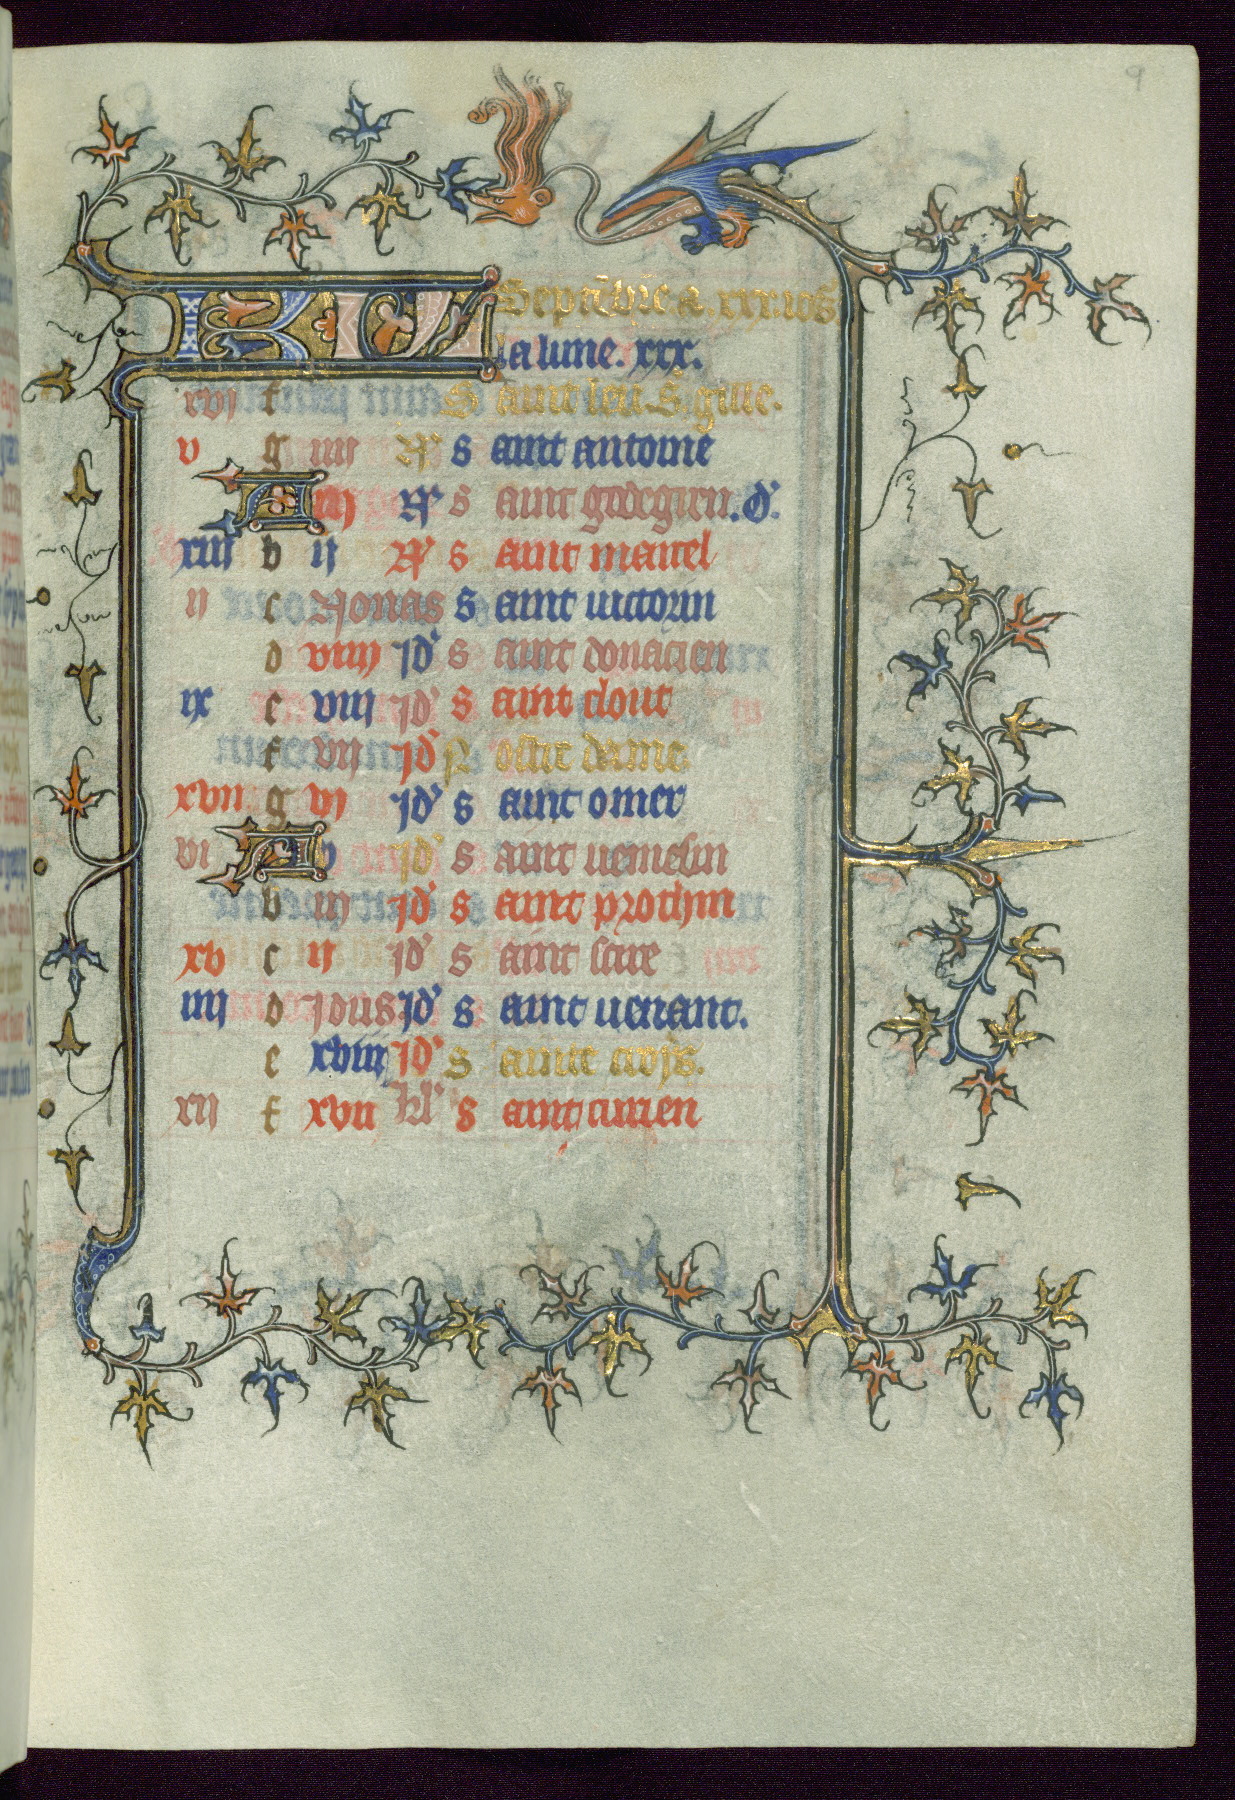 9
KL Septẽbre a .xxx. ios̃.
la lune. xxx.
xvj f S aint leu. S. gille.
v g iiij N̾ s aint antoine
A iij N̾ s aint godegrẽn. d̾.
xiii b ij N̾ s aint marcel
ij c Nonas s aint uictorin
d viij jd̾ s aint donacien
ix e viij jd̾ s aint clout
f vij jd̾ N ostre dame
xvii g vj jd̾ s aint omer
vi A v jd̾ s aint uemelin
b iiij jd̾ s aint prothin
xv c iij jd̾ s aint sire
iiij d jdus jd̾ s aint uenant.
e xviij jd̾ s ainte crojs.
xij f xvii kl̾ s aint aurien